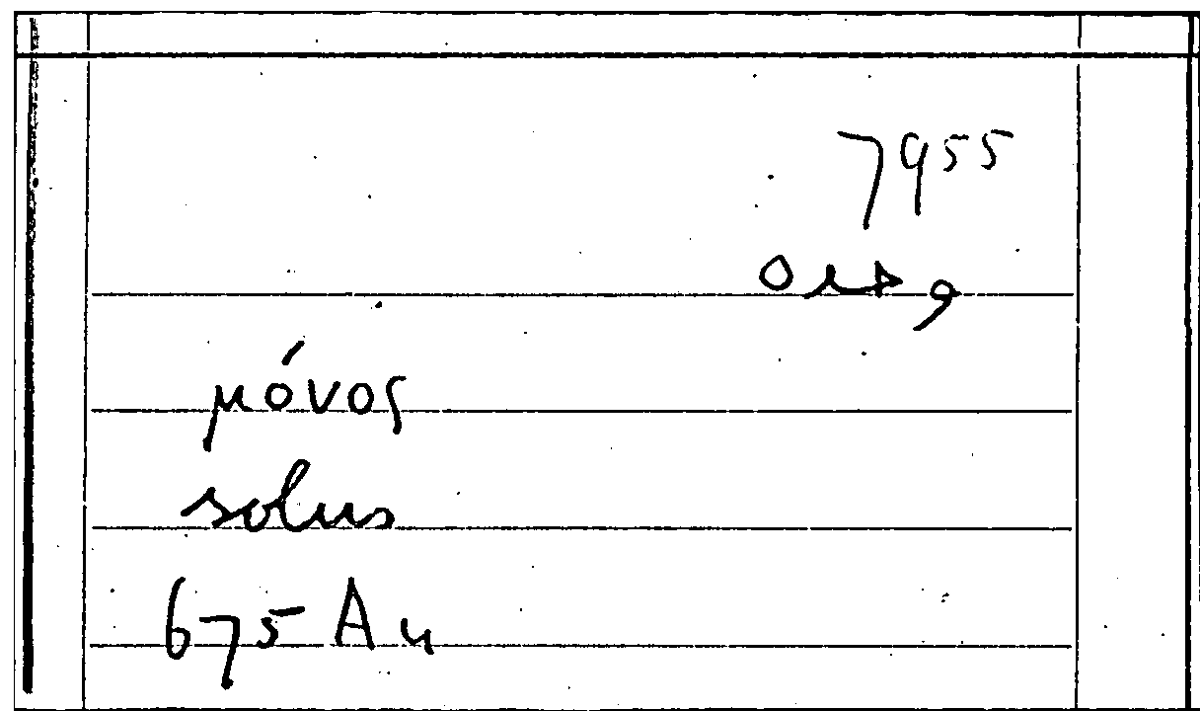 7955
μόνος
solus
675 Au